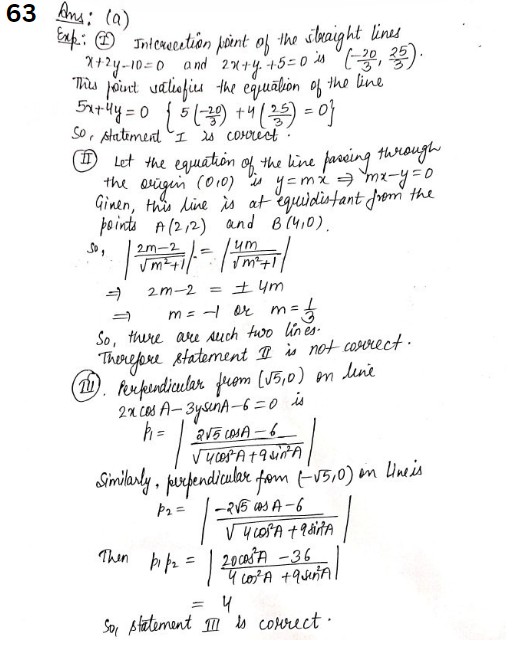 63 Ans: (a)
Exp: (I) Intersection point of the straight lines
x+2y-10=0 and 2x+y+5=0 is (-20/3, 25/3).
This point satisfies the equation of the line
5x+4y=0 {5(-20/3)+4(25/3)=0}
So, statement I is correct.
(II) Let the equation of the line passing through
the origin (0,0) is y=mx ⇒ mx-y=0
Given, this line is at equidistant from the
points A(2,2) and B(4,0).
So, |2m-2/√m²+1| = |4m/√m²+1|
⇒ 2m-2 = ± 4m
⇒ m = -1 or m = 1/3
So, there are such two lines.
Therefore statement II is not correct.
(III). Perpendicular from (√5,0) on line
2x cos A - 3y sin A - 6 = 0 is
p1 = |2√5 cos A - 6/√4cos²A + 9 sin²A|
Similarly, perpendicular from (-√5,0) on line is
p2 = |-2√5 cos A - 6/√4cos²A + 9sin²A|
Then p1 p2 = |20cos²A - 36/4 cos²A + 9sin²A|
= 4
So, statement III is correct.